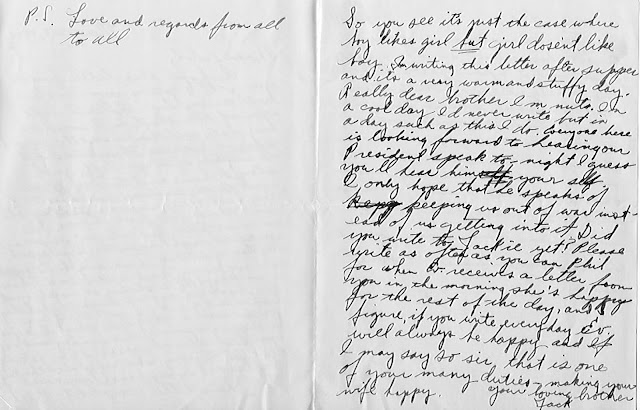 P.S. Love and regards from all
to all
So you see it's just the case where
boy likes girl but girl dosen't like
boy. I'm writing this letter after supper
and it's a very warm and stuffy day.
Really dear brother I'm nuts. In
a cool day I'd never write but in
a day such as this I do. Everyone here
is looking forward to hearing our
President speak to-night I guess
you'll hear him your self
I only hope that he speaks of
keeping us out of war inst-
ead of us getting into it. Did
you write to Jackie yet? Please
write as often as you can Phil
for when Ev. receives a letter from
you in the morning she's happy
for the rest of the day, and I
figure, if you write everyday Ev.
will always be happy and If
I may say so sir, that is one
of your many duties, making your
wife happy. Your loving brother
Jack